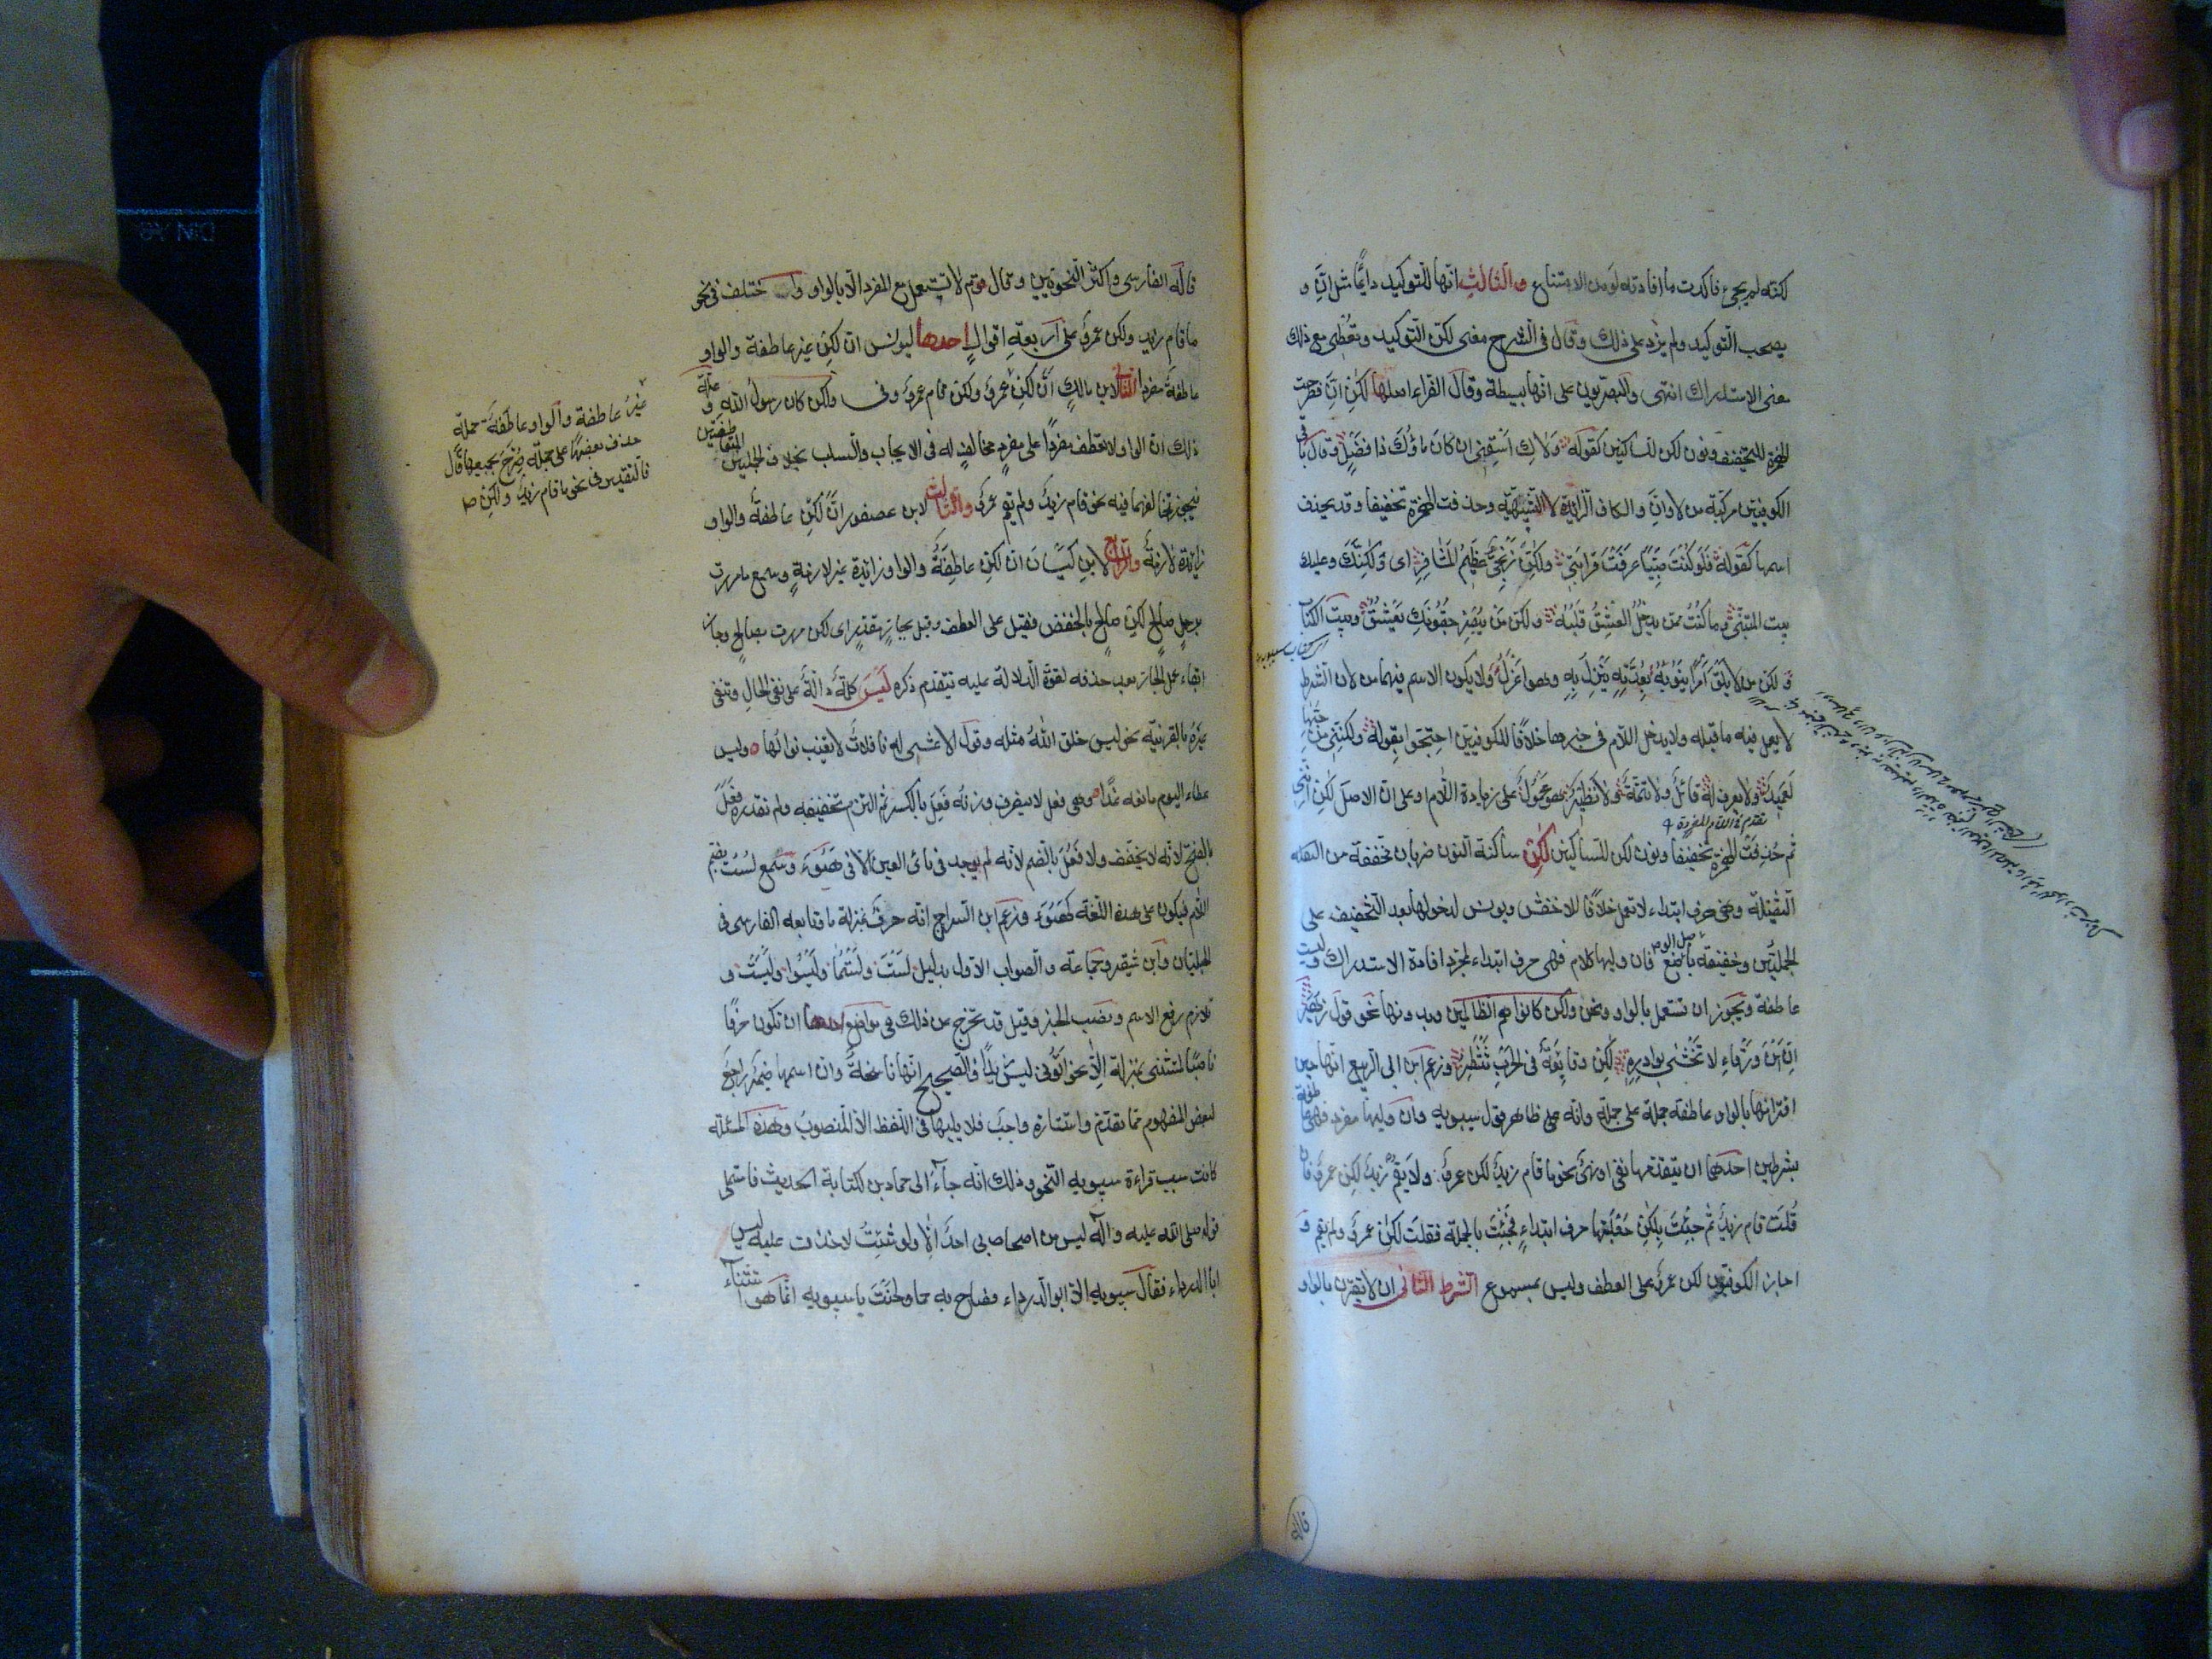 لكنه لم يجئ فاكدت ما افادته لو من الامتناع والثالث انها للتوكيد دايما مثل انّ و
يصحب التوكيد ولم يزد على ذلك وقال فى الشرح معنى لكنّ التوكيد وتعطى مع ذلك
معنى الاستدراك انتهى والبصريون على انها بسيطة وقال الفراء اصلها لكن انّ فطرحت
الهمزة للتخفيف ونون لكن للساكنين كقوله ولاك اسقنى ان كان ماؤك ذا فضل وقال باقى
الكوفيين مركبة من لا وانّ والكاف الزايدة لا التشبيهيّة وحذفت الهمزة تخفيفا وقد يحذف
اسمها كقوله فلو كنت ضبّيّا عرفت قرابتى ولكنّ زنجىّ عظيم المشافر اى ولكنّك وعليه
بيت المتنبّى وما كنت ممن يدخل العشق قلبه ولكنّ من يبصر جفونك يعشق وبيت الكتاب
ولكنّ من لا يلق امرا ينوبه بعدّته ينزل به وهو اعزل ولا يكون الاسم فيهما من لان الشرط
لا يعمل فيه ما قبله ولا يدخل اللام فى خبرها خلافا للكوفيين احتجّوا بقوله ولكننى من حبّها
لعميد ولا يعرف له قائل ولا تتمّة ولا نظير ثم هو محمول على زيادة اللام او على ان الاصل لكن اننى
ثم حذفت الهمزة تخفيفا ونون لكن للساكنين لكن ساكنة النون ضربان مخففة من الثقيلة
الثقيلة وهى حرف ابتداء لا تعمل خلافا للاخفش ويونس لدخولها بعد التخفيف على
الجملتين وخفيفة باصل الوضع فان وليها كلام فهى حرف ابتداء لمجرّد افادة الاستدراك وليست
عاطفة ويجوز ان تستعمل بالواو ونحو ولكن كانوا هم الظالمين وبدونها نحو قول زهير
انّ ابن ورقاء لا تخشى بوادره لكن وقايعه فى الحرب تنتظر وزعم ابن ابى الربيع انها حين
اقترانها بالواو عاطفة جملة على جملة وانه ظاهر قول سيبويه وان وليها مفرد فهى عاطفة
بشرطين احدهما ان يتقدمها نفى او نهى نحو ما قام زيد لكن عمرو ولا يقم زيد لكن عمرو فان
قلت قام زيد ثم جئت بلكن جعلتها حرف ابتداء فجئت بالجملة فقلت لكن عمرو لم يقم و
اجاز الكوفيون لكن عمرو على العطف وليس بمسموع الشرط الثانى ان لا تقترن بالواو
قاله
قاله الفارسى واكثر النحويين وقال قوم لا تستعمل مع المفرد الّا بالواو واختلف فى نحو
ما قام زيد ولكن عمرو على اربعة اقوال احدها ليونس ان لكن غير عاطفة والواو
عاطفة مفردا الثانى لابن مالك انّ لكن
ذلك ان الواو لا تعطف مفردا على مفرد مخالف له فى الايجاب والسلب بخلاف الجملتين المتعاطفتين
فيجوز تخالفهما فيه نحو قام زيد ولم يقم عمرو والثالث لابن عصفور انّ لكن عاطفة والواو
زايدة لازمة والرابع لابن كيسان ان لكن عاطفة والواو زايدة غير لازمة وسمع ما مررت
برجل صالح لكن صالح بالخفض فقيل على العطف وقيل بجارّ مقدّر اى لكن مررت بصالح وجاز
ابقاء عمل الجارّ بعد حذفه لقوّة الدلالة عليه بتقدم ذكره ليس كلمة دالّة على نفى الحال وتنفى
غيره بالقرينة نحو ليس خلق الله مثله وقول الاعشى له نافلات لا يغبّ نوالها وليس
عطاء اليوم مانعه غدا وهى فعل لا يتصرف وزنه فعل بالكسر ثم التزم تخفيفه ولم نقدّره فعل
بالفتح لانّه لا يخفف ولا فعل بالضم لانه لم يوجد فى يائى العين الا فى هيؤ وسمع لست بضم
اللام فيكون على هذه اللغة كهيؤ وزعم ابن السراج انه حرف بمنزلة ما وتابعه الفارسى فى
الحلبيات وابن شقير وجماعة والصواب الاول بدليل لست ولستما وليسوا وليست و
تلازم رفع الاسم ونصب الخبر وقيل قد تخرج عن ذلك فى مواضع احدها ان تكون حرفا
ناصبا للمستثنى بمنزلة الّا نحو اتونى ليس زيدا والصحيح انها ناسخة وان اسمها ضمير راجع
لبعض المفهوم مما تقدم واستتاره واجب فلا يليها فى اللفظ الا المنصوب وهذه المسئلة
كانت سبب قراءة سيبويه النحو وذلك انه جاء الى حماد بن لكتابة الحديث فاستملى
قوله صلى الله عليه وآله ليس من اصحابى احد الّا ولو شئت لاخذت عليه ليس
ابا الدرداء فقال سيبويه ليس ابو الدرداء فصاح به حماد لحنت يا سيبويه انما هو استثناء
غير عاطفة والواو عاطفة جملة
حذف بعضها على جملة صرّح بجميعها قال
فالتقدير فى نحو ما قام زيد ولكن